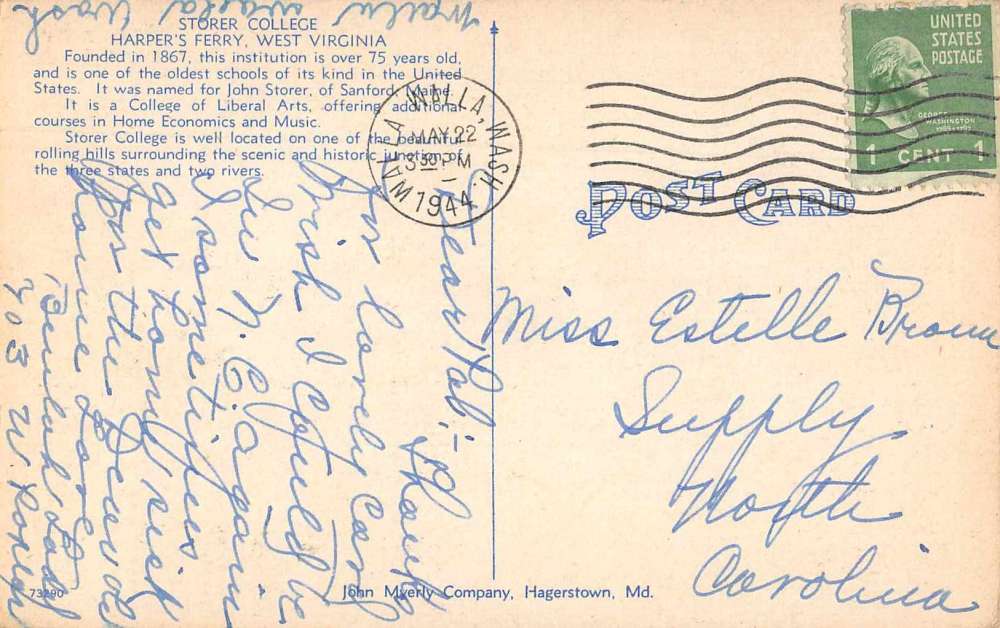 STORER COLLEGE
HARPER'S FERRY, WEST VIRGINIA
Founded in 1867, this institution is over 75 years old,
and is one of the oldest schools of its kind in the United
States. It was named for John Storer, of Sanford, Maine.
It is a College of Liberal Arts, offering additional
courses in Home Economics and Music.
Storer College is well located on one of the beautiful
rolling hills surrounding the scenic and historic junction of
the three states and two rivers.
WALLA WALLA, WASH.
MAY 22
3 30 PM
1944
UNITED
STATES
POSTAGE
GEORGE
WASHINGTON
1789-1797
1 CENT 1
POST CARD
Dear Pal;- Thanks
for lovely Card
Wish I Could be
in N. C. again
I sometimes
get homesick
for the
same
Beulah
403 W
Walla Walla Wash
Miss Estelle Brown
Supply
North
Carolina
73290
John Myerly Company, Hagerstown, Md.